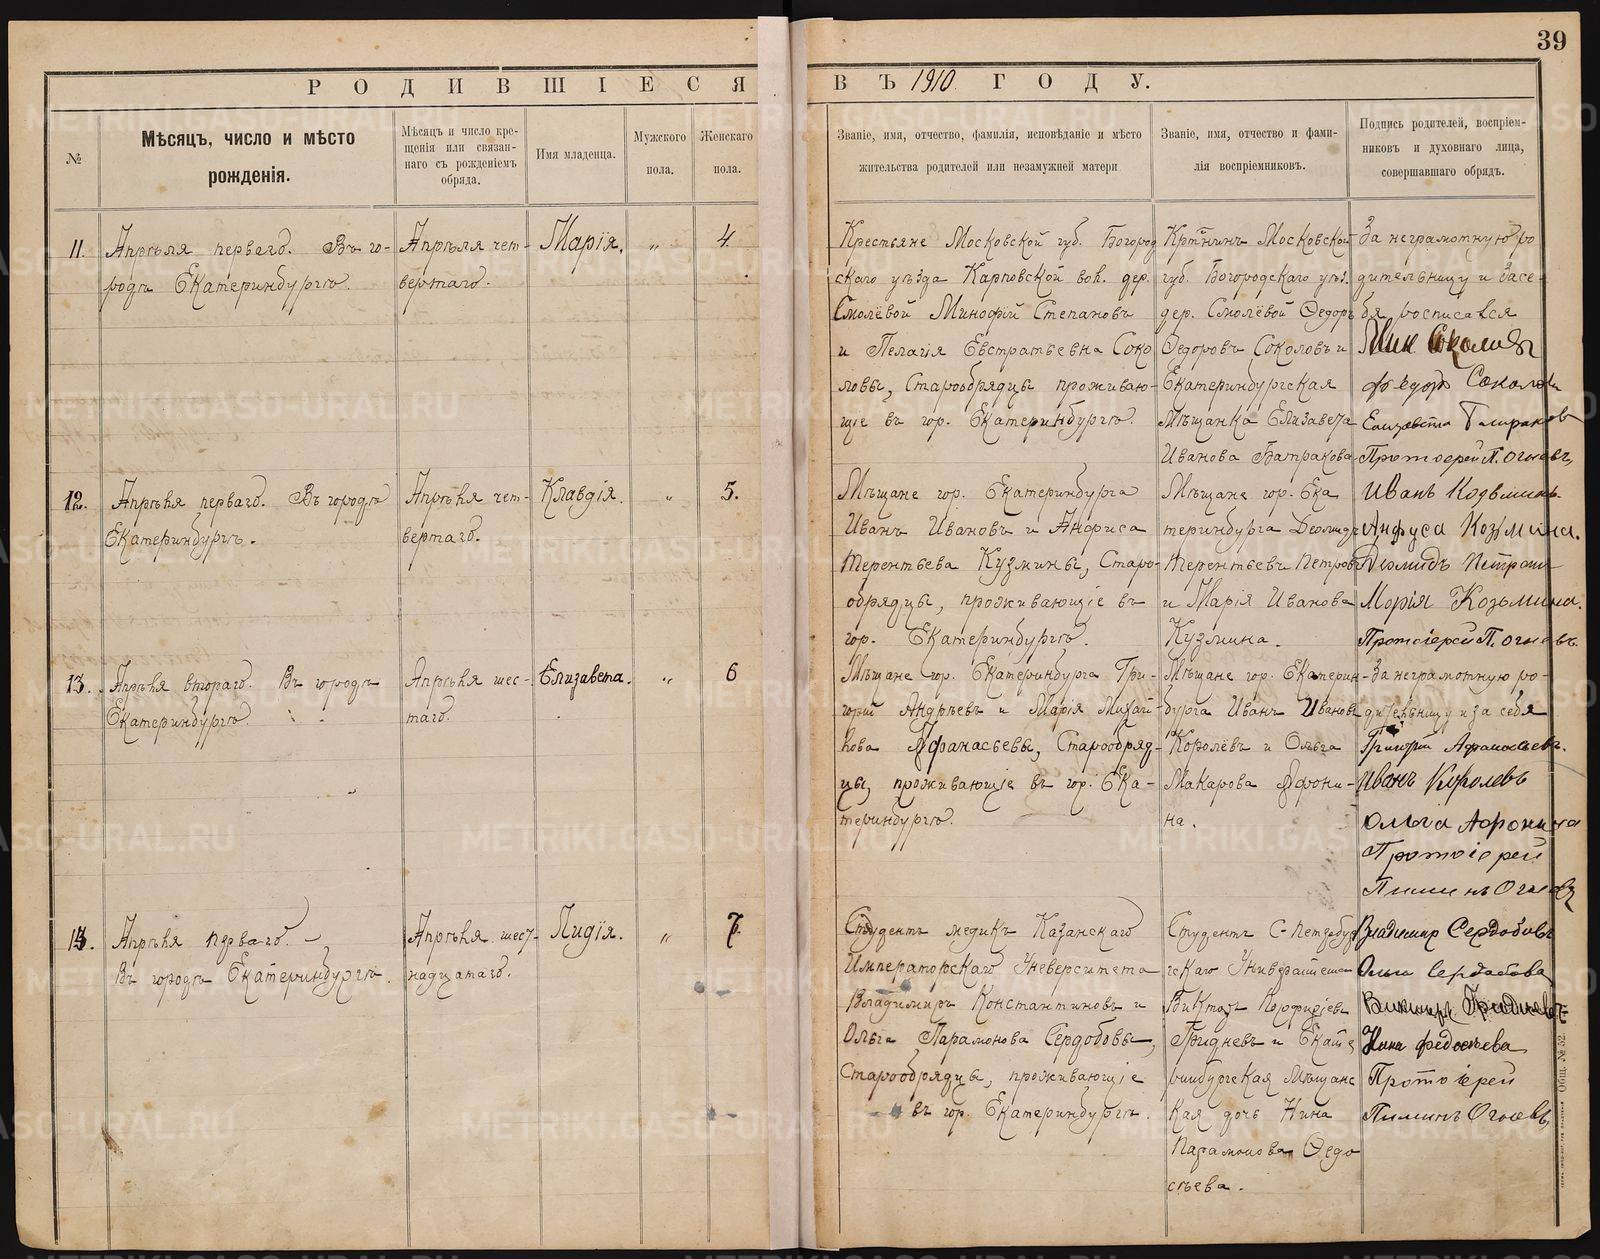 39
РОДИВШІЕСЯ ВЪ 1910 ГОДУ.
№
Мѣсяцъ, число и мѣсто
рожденія.
Мѣсяцъ и число кре-
щенія или связан-
наго съ рожденіемъ
обряда.
Имя младенца.
Мужского
пола.
Женскаго
пола.
Званіе, имя, отчество, фамилія, исповѣданіе и мѣсто
жительства родителей или незамужней матери
Званіе, имя, отчество и фами-
лія воспріемниковъ.
Подпись родителей, воспріем-
никовъ и духовнаго лица,
совершавшаго обрядъ.
11.
Апрѣля перваго. Въ го-
родѣ Екатеринбургѣ.
Апрѣля чет-
вертаго.
Марія.
"
4.
Крестьяне Московской губ. Богород
скаго уѣзда Карповской вол. дер.
Смолёвой Минофій Степановъ
и Пелагія Евстратьевна Соко
ловы, Старообрядцы проживаю-
щіе въ гор. Екатеринбургѣ.
Кртнинъ Московской
губ. Богородскаго уѣз.
дер. Смолёвой Ѳедоръ
Ѳедоровъ Соколовъ и
Екатеринбургская
Мѣщанка Елизавета
Иванова Батракова
За неграмотную ро
дительницу и за се-
бя росписался
Мин Соколовъ
Ѳедоръ Соколов
Елизавета Батракова
Протоіерей П. Огневъ,
12.
Апрѣля перваго. Въ городѣ
Екатеринбургѣ.
Апрѣля чет-
вертаго.
Клавдія.
"
5.
Мѣщане гор. Екатеринбурга
Иванъ Ивановъ и Анфиса
Терентьева Кузмины, Старо-
обрядцы, проживающіе въ
гор. Екатеринбургѣ.
Мѣщане гор. Ека
теринбурга Деомидъ
Терентьевъ Петровъ
и Марія Иванова
Кузмина.
Иванъ Козьминъ
Анфуса Козьмина.
Деомидъ Петровъ
Морія Козьмина.
Протоіерей П. Огневъ
13.
Апрѣля втораго. Въ городѣ
Екатеринбургѣ.
Апрѣля шес-
таго.
Елизавета.
"
6
Мѣщане гор. Екатеринбурга Гри-
горій Андрѣевъ и Марія Михай-
лова Афанасьевы, Старообряд-
цы, проживающіе въ гор. Ека-
теринбургѣ.
Мѣщане гор. Екатерин-
бурга Иванъ Ивановъ
Королёвъ и Ольга
Макарова Афони-
на.
За неграмотную ро-
дительницу и за себя
Григорій Афанасьевъ.
Иванъ Королевъ
Ольга Афонина
Протоіерей
Пименъ Огневъ
14.
Апрѣля перваго.
Въ городѣ Екатеринбургѣ.
Апрѣля шест-
надцатаго.
Лидія.
"
7.
Студентъ медикъ Казанскаго
Императорскаго Университета
Владимиръ Константиновъ и
Ольга Парамонова Сердобовы,
Старообрядцы, проживающіе
въ гор. Екатеринбургѣ.
Студентъ С-Петербур
гскаго Университета
Викторъ Порфиріевъ
Гридневъ и Екате
ринбургская Мѣщанс
кая дочь Нина
Парамонова Ѳедо
сѣева.
Владимиръ Сердобовъ
Ольга Сердобова
Викторъ Гридневъ
Нина Федосѣева
Протоіерей
Пименъ Огневъ,
METRIKI.GASO-URAL.RU